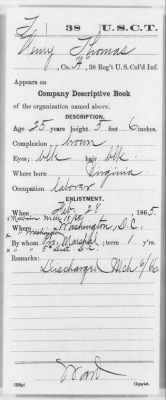 T 38 U.S.C.T.
Henry Thomas
, Co. H, 38 Reg't U. S. Col'd Inf.
Appears on
Company Descriptive Book
of the organization named above.
DESCRIPTION.
Age 25 years; height 5 feet 6 inches.
Complexion brown
Eyes blk; hair blk
Where born Virginia
Occupation laborer
ENLISTMENT.
When Feb. 28, 1865.
Where Washington, D.C.
By whom Marshal; term 1 y'rs.
Remarks:
Discharged Mch 6/66
Ward
Copyist.